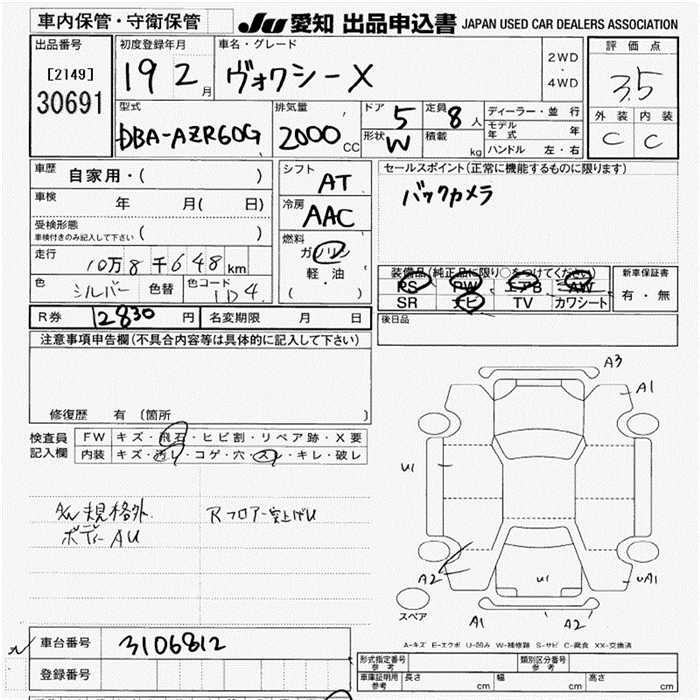 車内保管・守衛保管
JU 愛知 出品申込書 JAPAN USED CAR DEALERS ASSOCIATION
出品番号
[2149]
30691
初度登録年月
19 2 月
車名・グレード
ヴォクシーX
2WD
・
4WD
評価点
3.5
外装 内装
C C
型式
DBA-AZR60G
排気量
2000 CC
ドア 5
形状 W
定員 8 人
積載 kg
ディーラー・並 行
モデル年式 年
ハンドル 左・右
車歴 自家用・( )
車検 年 月( 日)
受検形態
車検付きのみ記入して下さい ( )
走行
10万8千648km
色 シルバー 色替 色コード 1D4
シフト
AT
冷房
AAC
燃料
ガソリン
軽・油
( )
セールスポイント(正常に機能するものに限ります)
バックカメラ
装備品(純正品に限り○をつけてください)
PS PW エアB AW
SR ナビ TV カワシート
新車保証書
有・無
R券 12830 円 名変期限 月 日
後日品
注意事項申告欄(不具合内容等は具体的に記入して下さい)
修復歴 有 (箇所 )
検査員
記入欄
FW キズ・飛石・ヒビ割・リペア跡・X要
内装 キズ・汚レ・コゲ・穴・スレ・キレ・破レ
A/W 規格外
ボディーAU
Rフロアー突上げU
A3
A1
U1
A2
U1
uA1
スペア
A1
A2
A-キズ E-エクボ U-凹み W-補修跡 S-サビ C-腐食 XX-交換済
車台番号 3106812
登録番号
形式指定番号 参考
類別区分番号
車庫証明用 参考 長さ cm 幅 cm 高さ cm